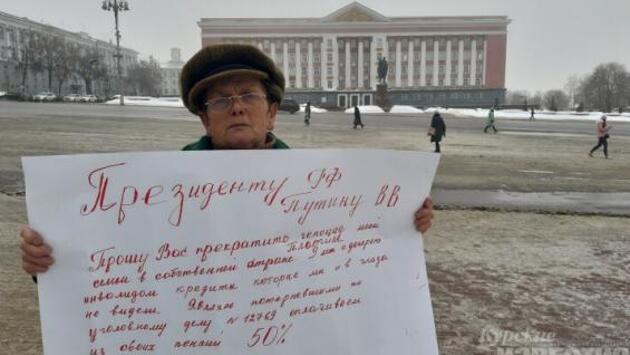 Президенту РФ
Путину ВВ
Прошу Вас прекратить геноцид моей
семьи в собственной стране. Платим
инвалидом кредиты которые мы и в глаза
не видели. Являясь потерпевшими по
уголовному делу №12769 оплачиваем
из своих пенсий 50%
Курские